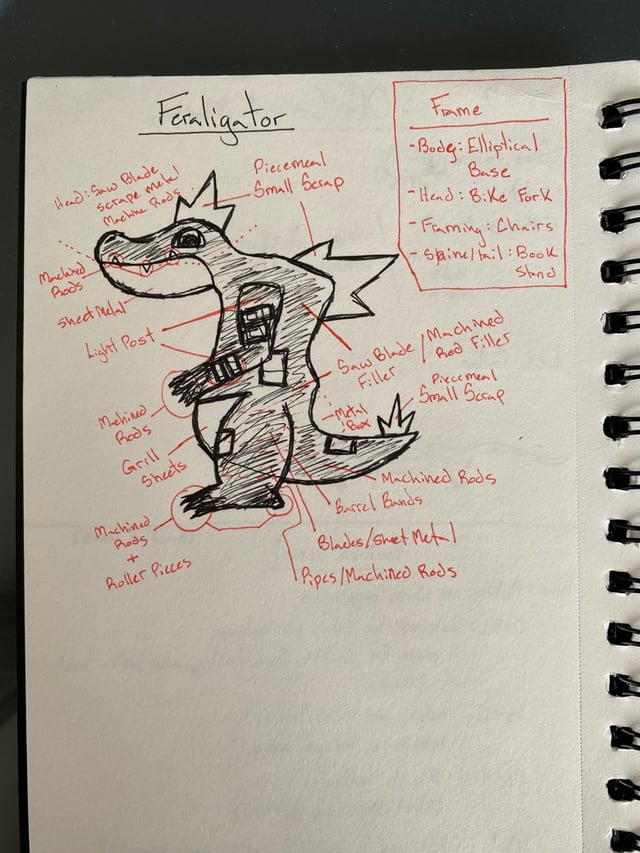 Feraligator
Frame
-Body: Elliptical
Base
-Head: Bike Fork
-Framing: Chairs
-Spine/tail: Book
Stand
Head: Saw Blade
scrape metal
Machine Rods
Piecemeal
Small Scrap
Machined
Rods
Sheet Metal
Light Post
Saw Blade / Machined
Filler Rod Filler
Piecemeal
Small Scrap
Metal
Box
Machined
Rods
Grill
Sheets
Machined Rods
Barrel Bands
Machined
Rods
+
Roller Pieces
Blades/Sheet Metal
Pipes/Machined Rods